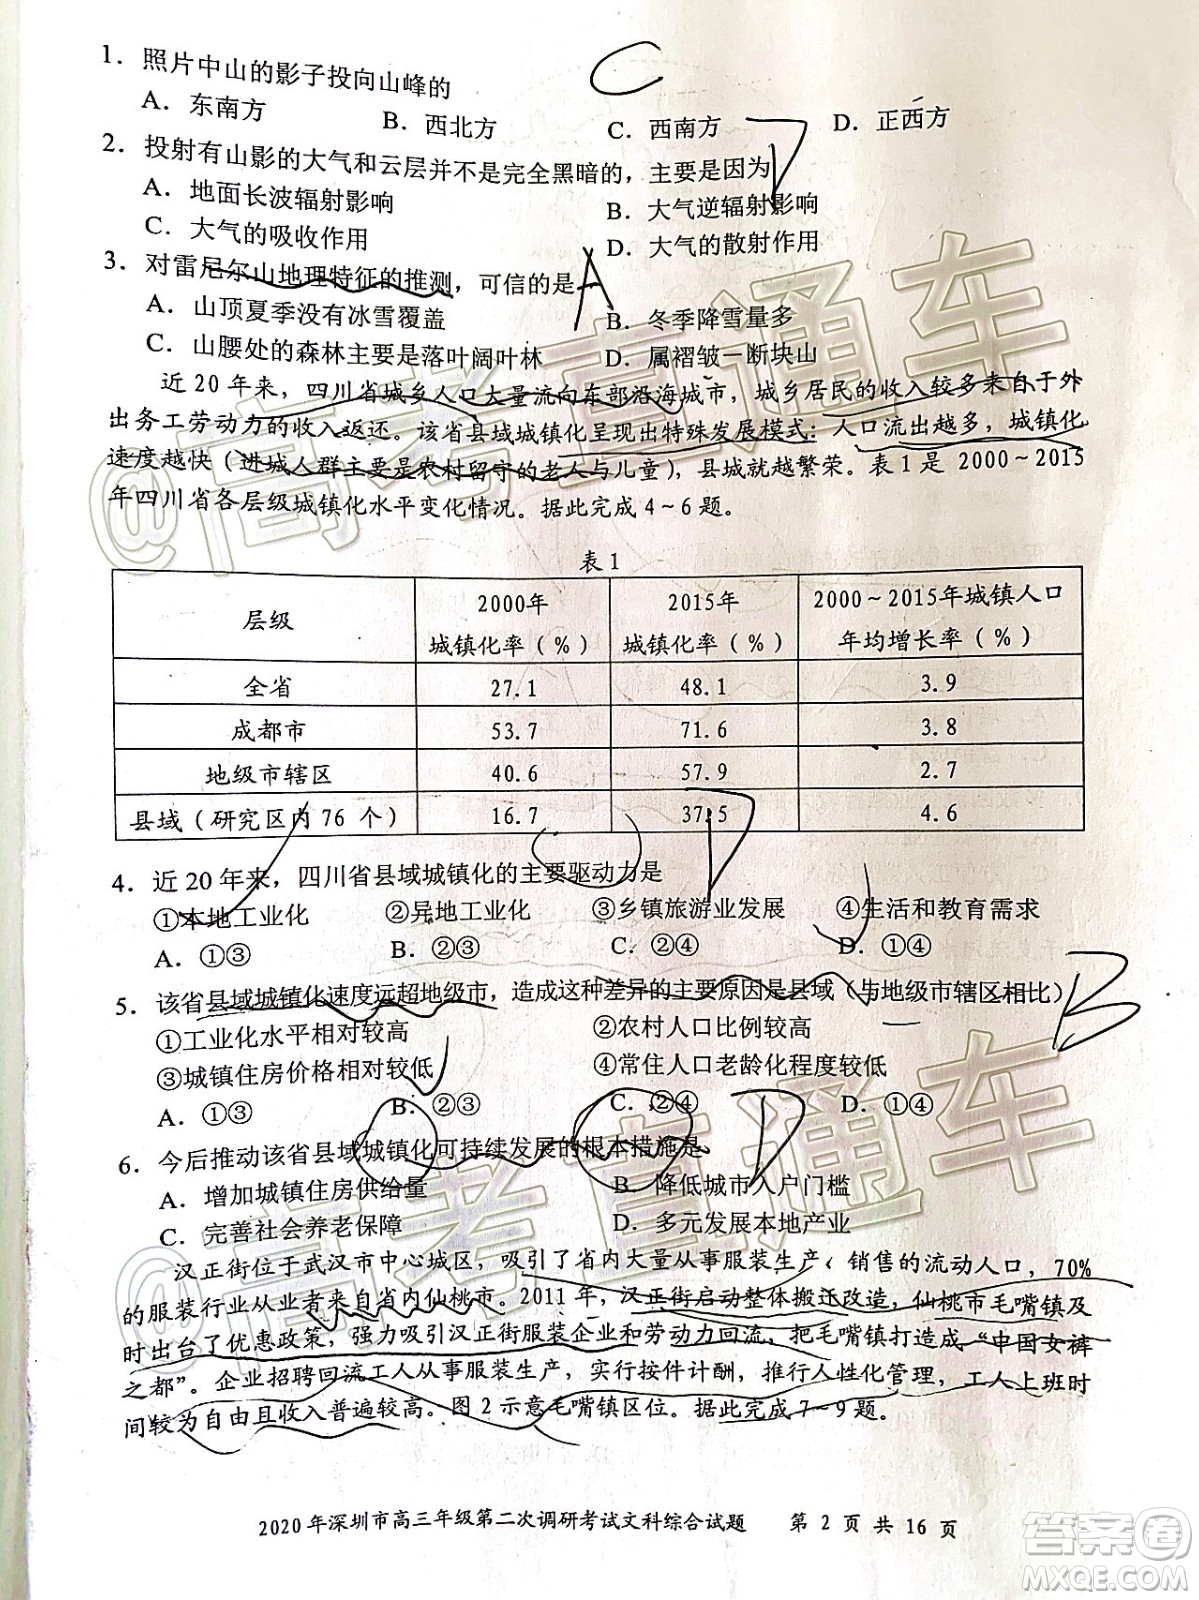 1. 照片中山的影子投向山峰的
A. 东南方 B. 西北方 C. 西南方 D. 正西方
2. 投射有山影的大气和云层并不是完全黑暗的，主要是因为
A. 地面长波辐射影响 B. 大气逆辐射影响
C. 大气的吸收作用 D. 大气的散射作用
3. 对雷尼尔山地理特征的推测，可信的是
A. 山顶夏季没有冰雪覆盖 B. 冬季降雪量多
C. 山腰处的森林主要是落叶阔叶林 D. 属褶皱—断块山
近 20 年来，四川省城乡人口大量流向东部沿海城市，城乡居民的收入较多来自于外
出务工劳动力的收入返还。该省县域城镇化呈现出特殊发展模式：人口流出越多，城镇化
速度越快（进城人群主要是农村留守的老人与儿童），县城就越繁荣。表 1 是 2000～2015
年四川省各层级城镇化水平变化情况。据此完成 4～6 题。
表 1
层级 2000年城镇化率（%） 2015年城镇化率（%） 2000～2015年城镇人口年均增长率（%）
全省 27.1 48.1 3.9
成都市 53.7 71.6 3.8
地级市辖区 40.6 57.9 2.7
县域（研究区内 76 个） 16.7 37.5 4.6
4. 近 20 年来，四川省县域城镇化的主要驱动力是
①本地工业化 ②异地工业化 ③乡镇旅游业发展 ④生活和教育需求
A. ①③ B. ②③ C. ②④ D. ①④
5. 该省县域城镇化速度远超地级市，造成这种差异的主要原因是县域（与地级市辖区相比）
①工业化水平相对较高 ②农村人口比例较高
③城镇住房价格相对较低 ④常住人口老龄化程度较低
A. ①③ B. ②③ C. ②④ D. ①④
6. 今后推动该省县域城镇化可持续发展的根本措施是
A. 增加城镇住房供给量 B. 降低城市入户门槛
C. 完善社会养老保障 D. 多元发展本地产业
汉正街位于武汉市中心城区，吸引了省内大量从事服装生产、销售的流动人口，70%
的服装行业从业者来自省内仙桃市。2011 年，汉正街启动整体搬迁改造，仙桃市毛嘴镇及
时出台了优惠政策，强力吸引汉正街服装企业和劳动力回流，把毛嘴镇打造成“中国女裤
之都”。企业招聘回流工人从事服装生产，实行按件计酬，推行人性化管理，工人上班时
间较为自由且收入普遍较高。图 2 示意毛嘴镇区位。据此完成 7～9 题。
2020 年深圳市高三年级第二次调研考试文科综合试题 第 2 页 共 16 页
C
D
A
D
B
D
@高考直通车
@高考直通车
答案圈
MXQE.COM